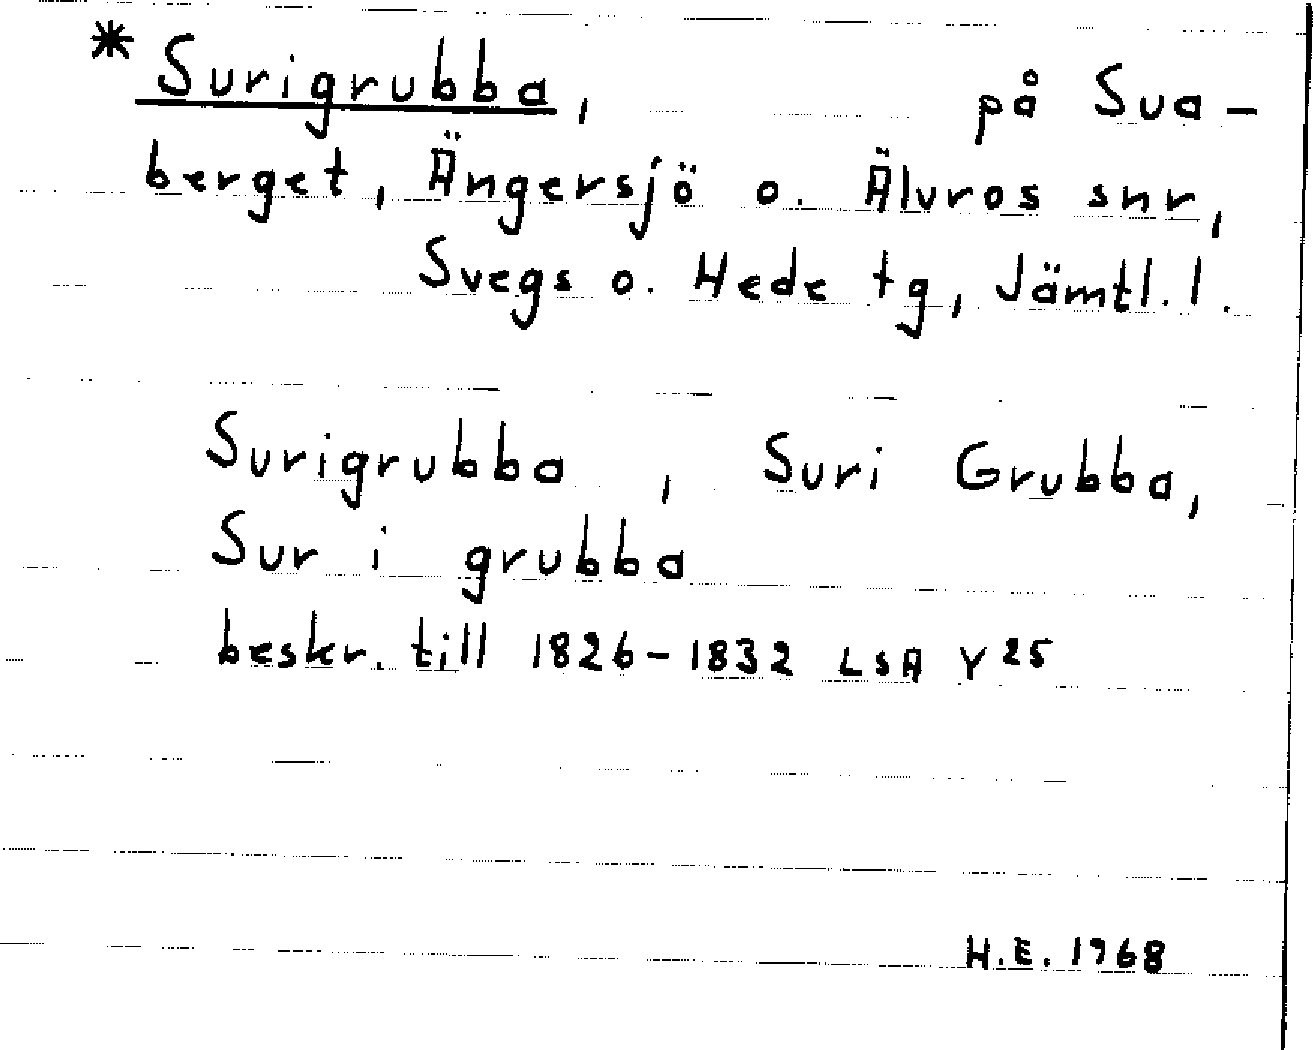 * Surigrubba, på Sva-
berget, Ängersjö o. Älvros snr,
Svegs o. Hede tg, Jämtl. l.
Surigrubba, Suri Grubba,
Sur i grubba
beskr. till 1826-1832 LSA Y 25
H.E. 1968